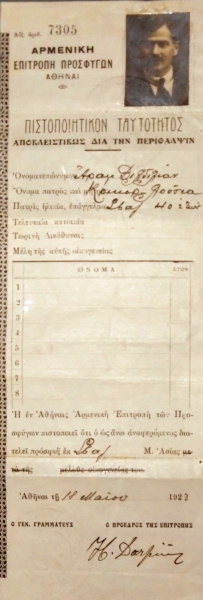 Αὔξ. ἀριθ. 7305
ΑΡΜΕΝΙΚΗ
ΕΠΙΤΡΟΠΗ ΠΡΟΣΦΥΓΩΝ
ΑΘΗΝΑΙ
ΠΙΣΤΟΠΟΙΗΤΙΚΟΝ ΤΑΥΤΟΤΗΤΟΣ
ΑΠΟΚΛΕΙΣΤΙΚΩΣ ΔΙΑ ΤΗΝ ΠΕΡΙΘΑΛΨΙΝ
Ὀνοματεπώνυμον
Ὄνομα πατρὸς καὶ μ
Πατρὶς ἡλικία, ἐπάγγελμα Σβαζ 40 ἐτῶν
Τελευταία κατοικία
Τωρινὴ Διεύθυνσις
Μέλη τῆς αὐτῆς οἰκογενείας
ΟΝΟΜΑ
1
2
3
4
5
6
7
8
Ἡ ἐν Ἀθήναις Ἀρμενικὴ Ἐπιτροπὴ τῶν Προ-
σφύγων πιστοποιεῖ ὅτι ὁ ὡς ἄνω ἀναφερόμενος δια-
τελεῖ πρόσφυξ ἐκ Σβαζ Μ. Ἀσίας μέ-
τὰ τῆς μέλους οἰκογενείας του.
Ἀθῆναι τῇ 18 Μαΐου 192
Ο ΓΕΝ. ΓΡΑΜΜΑΤΕΥΣ Ο ΠΡΟΕΔΡΟΣ ΤΗΣ ΕΠΙΤΡΟΠΗΣ